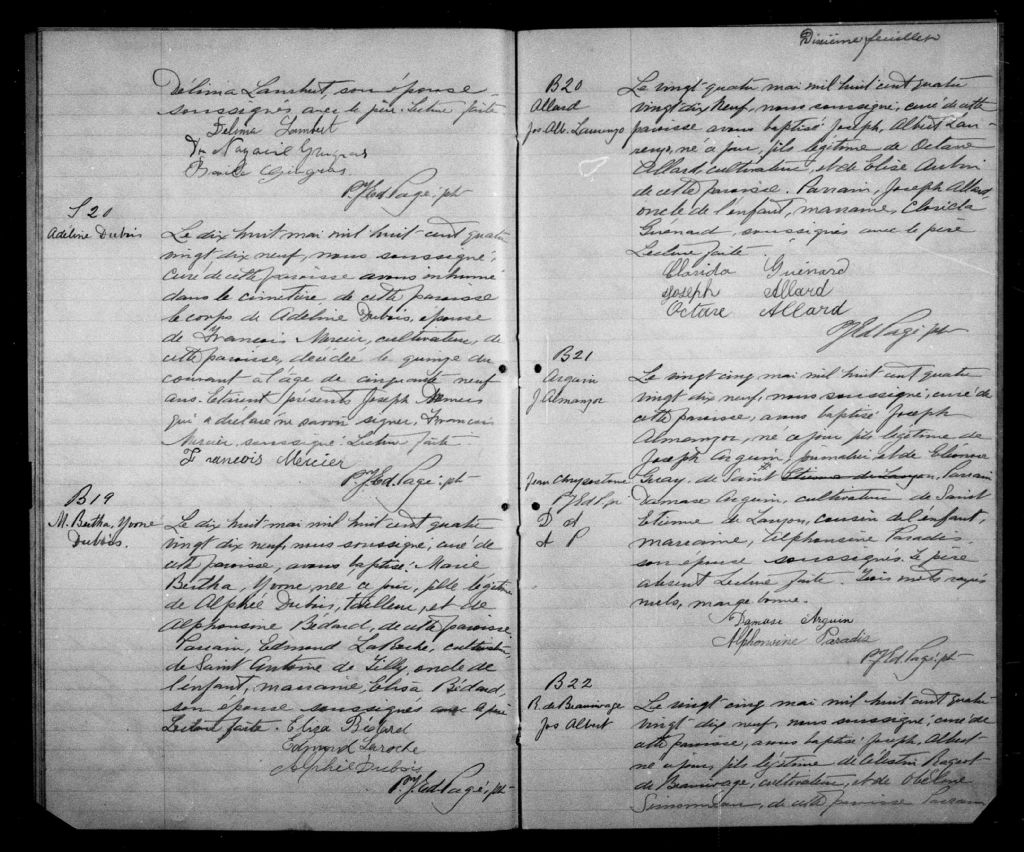 Délima Lambert, son épouse
soussignés avec le père. Lecture faite
Délima Lambert
Dr
Gingras
P. J. Ed. Pagé, ptr
S 20
Adéline Dubois
Le dix huit mai mil huit cent quatre
vingt dix neuf, nous soussigné,
curé de cette paroisse avons inhumé
dans le cimetière de cette paroisse
le corps de Adéline Dubois, épouse
de François Mercier, cultivateur, de
cette paroisse, décédée le quinze du
courant à l'âge de cinquante neuf
ans. Etaient présents Joseph
qui a déclaré ne savoir signer, François
Mercier, soussigné. Lecture faite
François Mercier
P. J. Ed. Pagé, ptr
B 19
M. Bertha, Yvonne
Dubois.
Le dix huit mai mil huit cent quatre
vingt dix neuf, nous soussigné, curé de
cette paroisse, avons baptisé Marie
Bertha, Yvonne, née ce jour, fille légitime
de Alphée Dubois, tailleur, et de
Alphonsine Bédard, de cette paroisse.
Parrain, Edmond LaRoche, cultivateur
de Saint Antoine de Tilly, oncle de
l'enfant, marraine, Elisa Bédard,
son épouse soussignés avec le père
Lecture faite. Eliza Bédard
Edmond Laroche
Alphée Dubois
P. J. Ed. Pagé, ptr
Dixième feuillet
B20
Allard
Jos. Alb. Laurenzo
Le vingt quatre mai mil huit cent quatre
vingt dix neuf, nous soussigné, curé de cette
paroisse avons baptisé Joseph, Albert Lau-
renzo, né ce jour, fils légitime de Octave
Allard, cultivateur, et de Elise Aubin
de cette paroisse. Parrain, Joseph Allard,
oncle de l'enfant, marraine, Clorida
Guénard, soussignés avec le père
Lecture faite.
Clorida Guénard
Joseph Allard
Octave Allard
P. J. Ed. Pagé, ptr
B21
Arguin
J. Almanzor
Le vingt cinq mai mil huit cent quatre
vingt dix neuf, nous soussigné, curé de
cette paroisse, avons baptisé Joseph
Almanzor, né ce jour fils légitime de
Joseph Arguin, journalier et de Eléonore
Jean Chrysostome
P. J. Ed. P. ptr
D A
A P
Guay, de Saint Etienne de Lauzon, Parrain
Damase Arguin, cultivateur de Saint
Etienne de Lauzon, cousin de l'enfant,
marraine, Alphonsine Paradis,
son épouse soussignés. Le père
absent Lecture faite. Trois mots rayés
nuls, marge bonne.
Damase Arguin
Alphonsine Paradis
P. J. Ed. Pagé, ptr
B22
R. de Beaurivage
Jos Albert
Le vingt cinq mai mil huit cent quatre
vingt dix neuf, nous soussigné, curé de
cette paroisse, avons baptisé Joseph, Albert
né ce jour, fils légitime de Célestin Rageot
de Beaurivage, cultivateur, et de Obéline
Simoneau, de cette paroisse Parrain